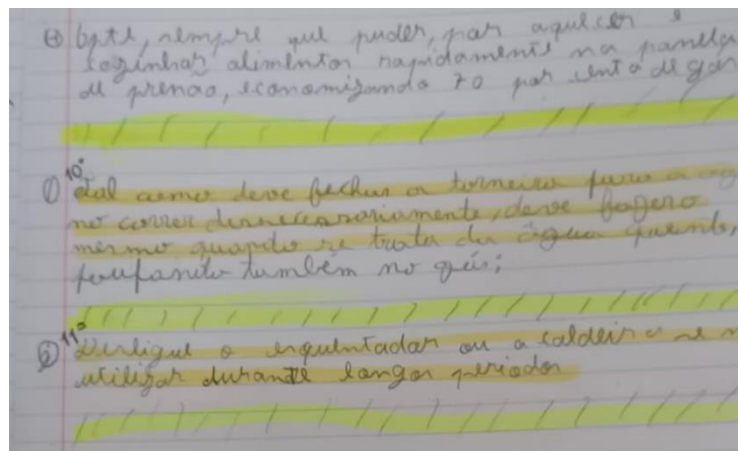 ④ Opte, sempre que puder, por aquecer e
cozinhar alimentos rapidamente na panela
de pressão, economizando 70 por cento de gás
10°
① Tal como deve fechar a torneira para a
no correr desnecessariamente, deve fazero
mesmo quando se trata da água quente,
poupando também no gás;
11°
② Desligue o esquentador ou a caldeira se
utilizar durante longos periodos